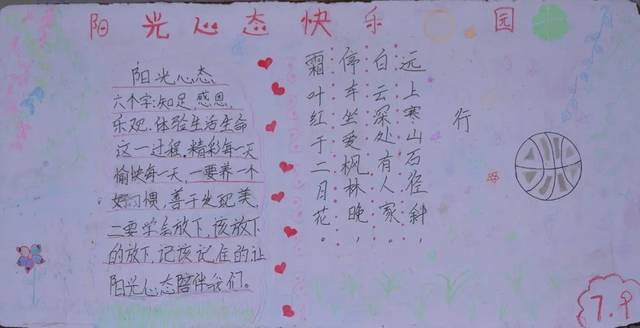 阳光心态快乐园
阳光心态
六个字:知足,感恩,
乐观.体验生活生命
这一过程.精彩每一天
愉快每一天,一要养一个
好习惯,善于发现美,
二要学会放下,该放下
的放下,记该记住的让
阳光心态陪伴我们。
行
远上寒山石径斜,
白云深处有人家
停车坐爱枫林晚,
霜叶红于二月花。
7.9